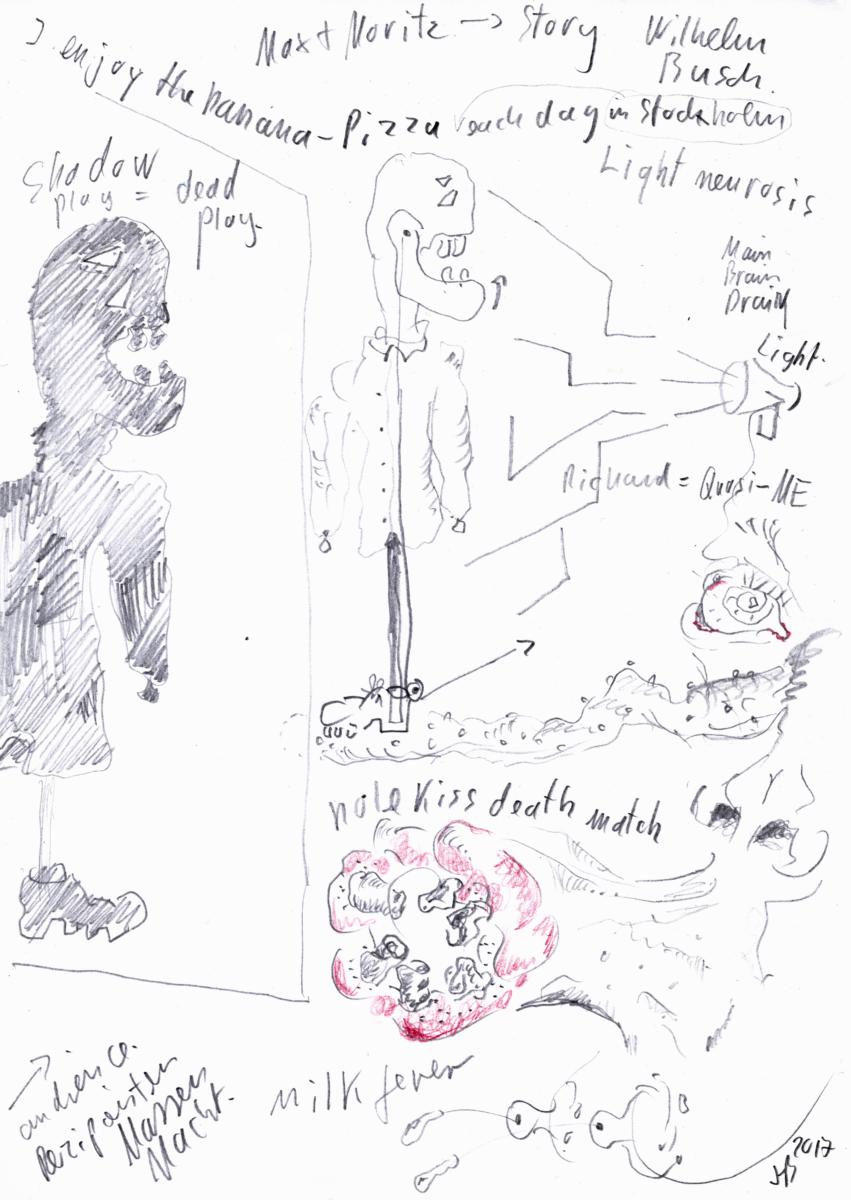 Max + Moritz → Story
Wilhelm
Busch.
I enjoy the banana-Pizza each day in Stockholm
Light neurosis
Shadow
play = dead
play.
Main
Brain
Drain
Light.
Richard = Quasi-ME
kiss death match
audience.
Massen
Macht.
milk fever
2017